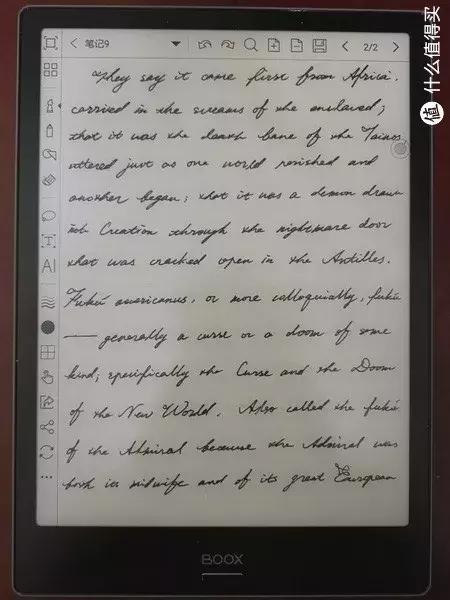 笔记9
2/2
They say it came first from Africa,
carried in the screams of the enslaved;
that it was the death bane of the Tainos
uttered just as one world perished and
another began; that it was a demon drawn
into Creation through the nightmare door
that was cracked open in the Antilles.
Fukú americanus, or more colloquially, fukú
— generally a curse or a doom of some
kind; specifically the Curse and the Doom
of the New World. Also called the fukú
of the Admiral because the Admiral was
both its midwife and of its great European
BOOX
值 什么值得买
T
AI